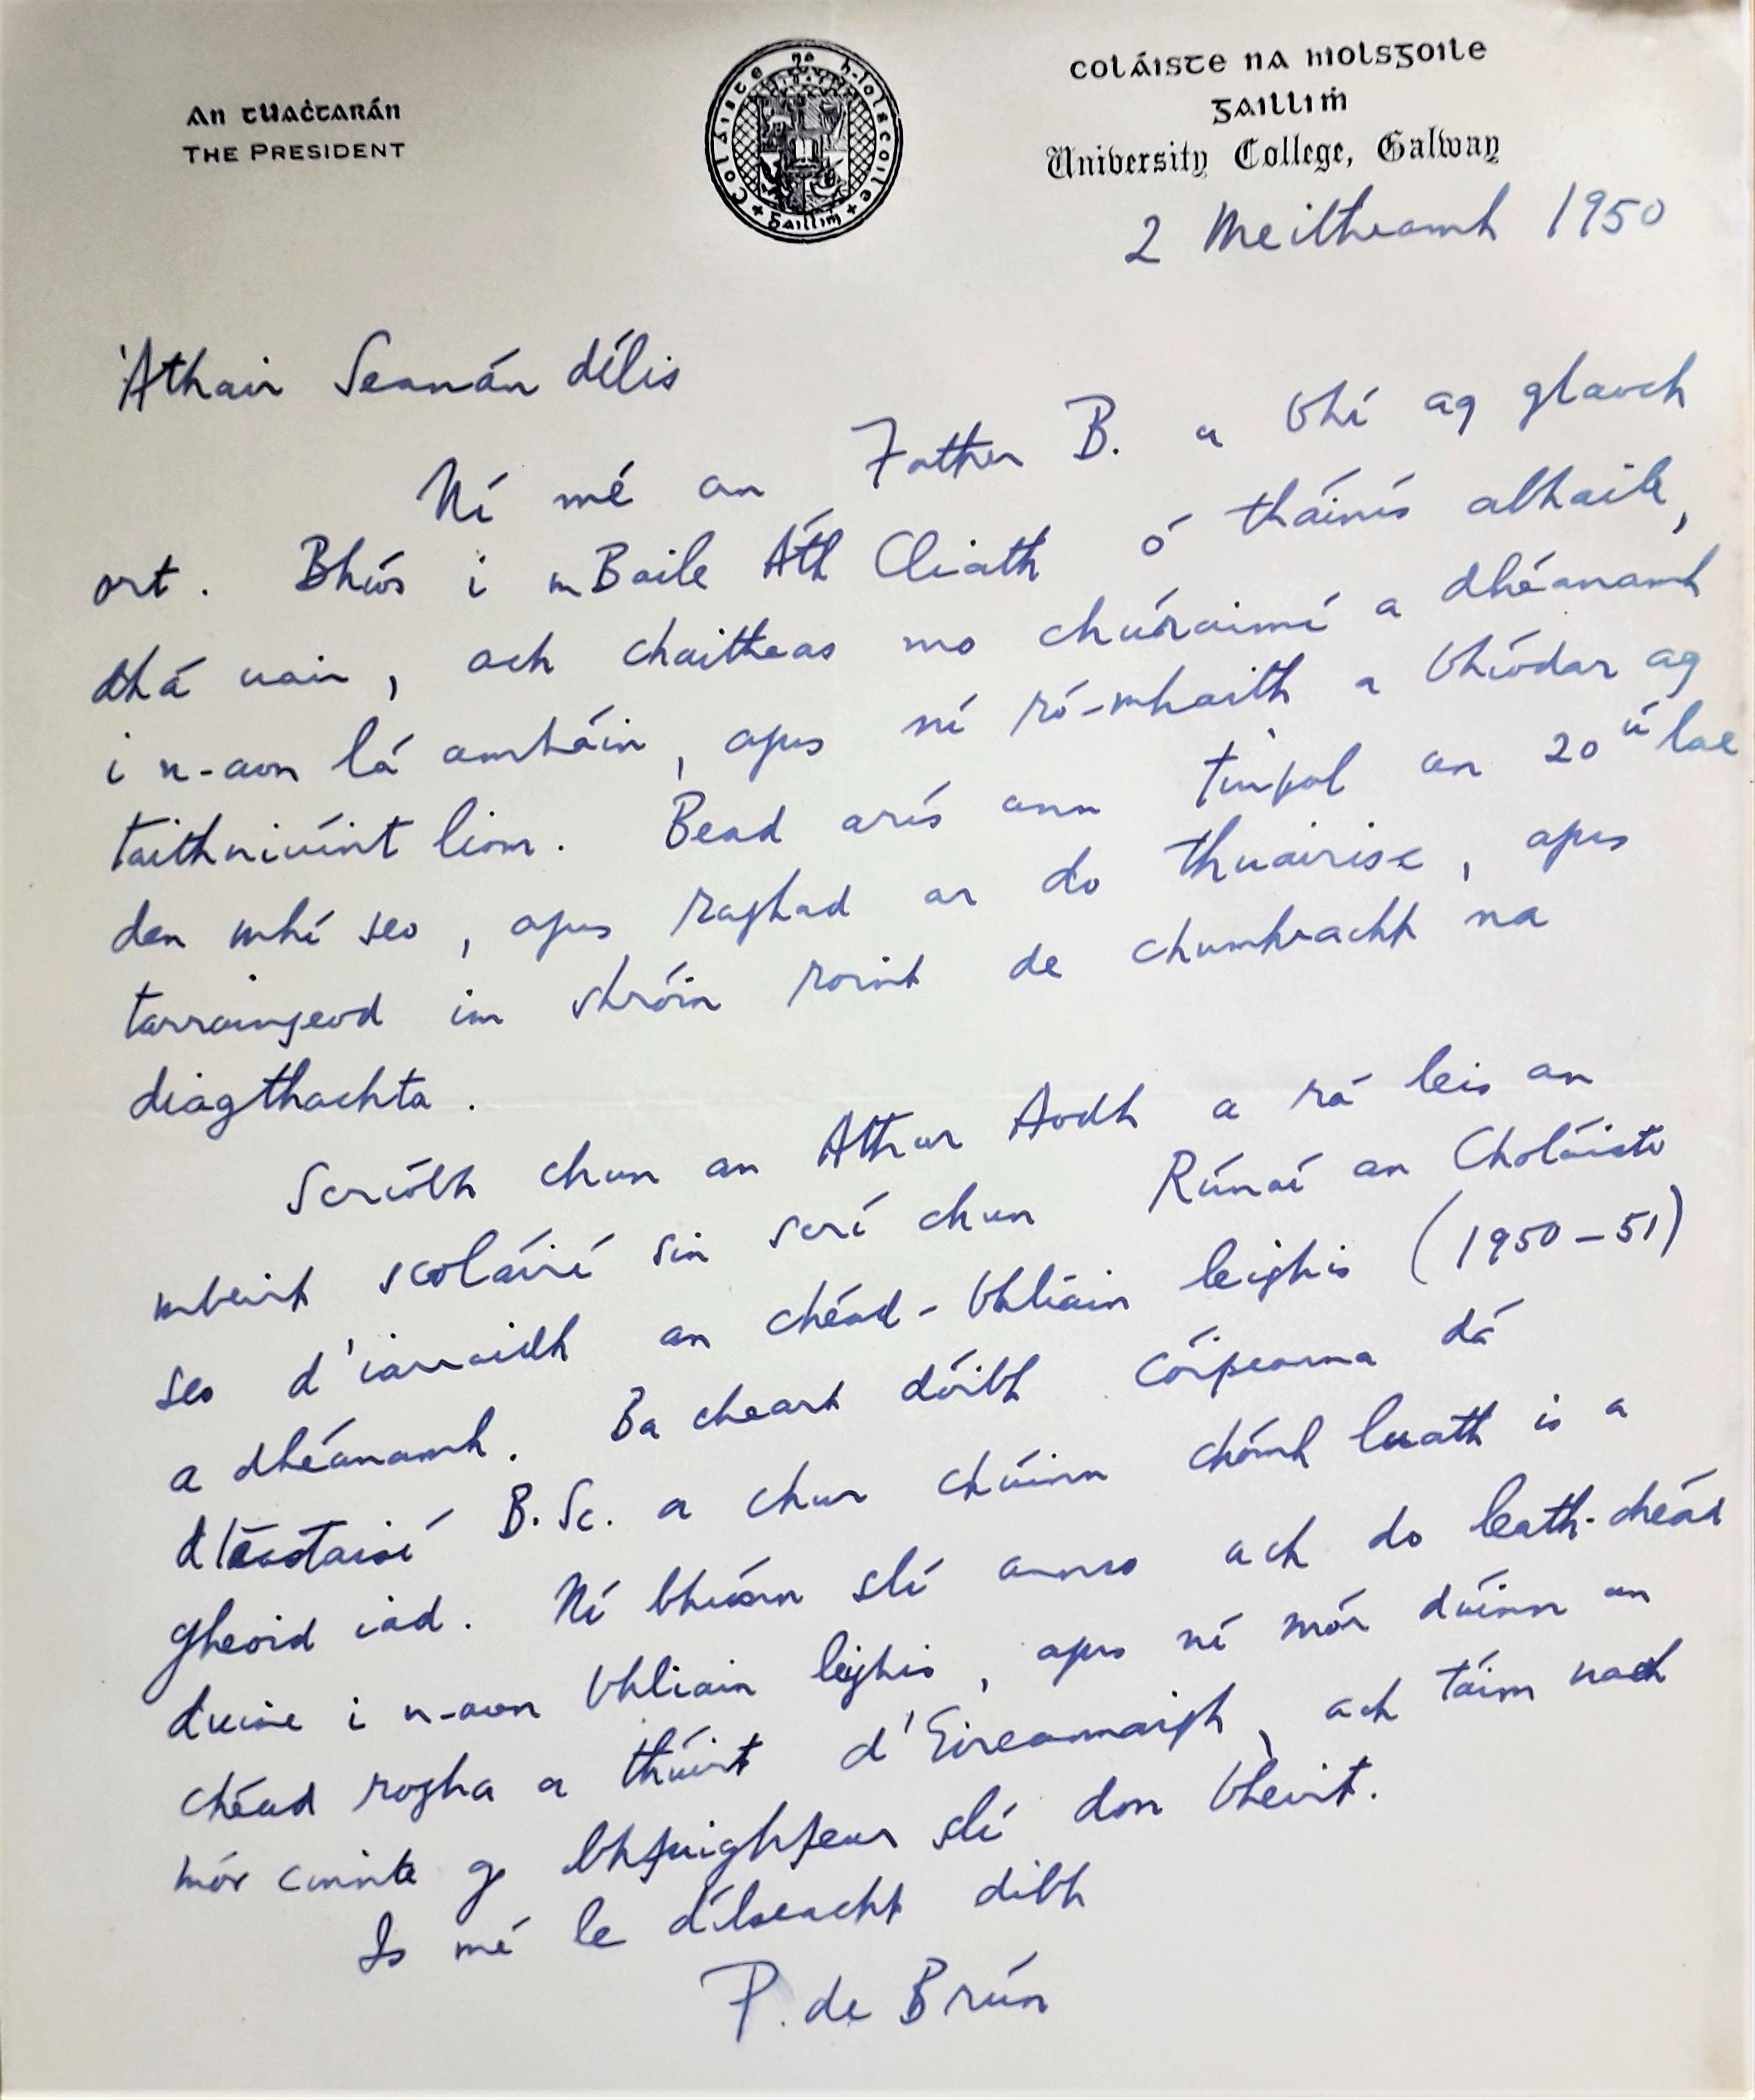 An tUaċtarán
The President
Coláisde na h-Iolscoile
Gaillim
Coláiste na hIolsgoile
Gailliṁ
University College, Galway
2 Meitheamh 1950
'Athair Seanán dílis
Ní mé an Father B. a bhí ag glaoch
ort. Bhíos i mBaile Áth Cliath ó tháinís abhaile,
dhá uair, ach chaitheas mo chúraimí a dhéanamh
i n-aon lá amháin, agus ní ró-mhaith a bhíodar ag
taithniúint liom. Bead arís ann timpal an 20ú lae
den mhí seo, agus raghad ar do thuairisc, agus
tarraingeod im shróin roint de chumhracht na
diagthachta.
Scríobh chun an Athar Aodh a rá leis an
mbeirt scoláirí sin scrí chun Rúnaí an Choláiste
seo d'iarraidh an chéad-bhliain leighis (1950-51)
a dhéanamh. Ba cheart dóibh cóipeanna dá
dteastaisí B.Sc. a chur chúinn chómh luath is a
gheoid iad. Ní bhíonn slí annso ach do leath-chéad
duine i n-aon bhliain leighis, agus ní mór dúinn an
chéad rogha a thúirt d'Éireannaigh, ach táim nach
mór cinnte go bhfuighfear slí don bheirt.
Is mé le dílseacht dibh
P. de Brún